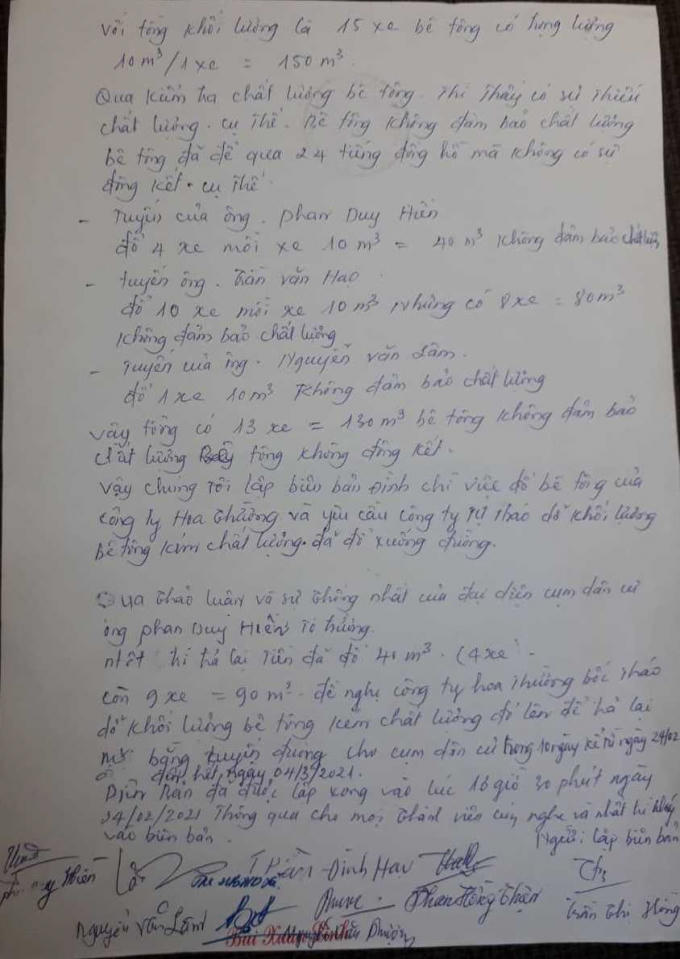 với tổng khối lượng là 15 xe bê tông có trọng lượng
10 m³/1 xe = 150 m³.
Qua kiểm tra chất lượng bê tông. Thì Thấy có sự thiếu
chất lượng. cụ thể. Bê tông không đảm bảo chất lượng
bê tông đã để qua 24 tiếng đồng hồ mà không có sự
đông kết. cụ thể
- Tuyến của ông. phan Duy Hiển
đổ 4 xe mỗi xe 10 m³ = 40 m³ không đảm bảo chất lượng
- tuyến ông. Trần văn Hao.
đổ 10 xe mỗi xe 10 m³ nhưng có 8 xe = 80 m³
không đảm bảo chất lượng
- Tuyến của ông. Nguyễn văn Lâm.
đổ 1 xe 10 m³ Không đảm bảo chất lượng
vậy tổng có 13 xe = 130 m³ bê tông không đảm bảo
chất lượng tông không đông kết.
vậy chúng tôi lập biên bản Đình chỉ việc đổ bê tông của
công ty Hoa Thường và yêu cầu công ty tự tháo dỡ khối lượng
bê tông kém chất lượng. đã đổ xuống đường.
Qua thảo luận và sự thống nhất của đại diện cụm dân cư
ông phan Duy Hiển
nhất trí trả lại tiền đã đổ 40 m³. (4 xe
còn 9 xe = 90 m³. đề nghị công ty hoa Thường bốc tháo
dỡ khối lượng bê tông kém chất lượng đó lên để trả lại
mặt bằng tuyến đường cho cụm dân cư trong 10 ngày kể từ ngày 24/02
đến hết ngày 04/3/2021.
Biên bản đã được lập xong vào lúc 16 giờ 30 phút ngày
24/02/2021 Thông qua cho mọi thành viên cùng nghe và nhất trí
vào biên bản.
Người lập biên bản
Đình Hạu
Phan Hồng Thiện
Trần Thị Hồng
Nguyễn Văn Lâm
Bùi Xuân